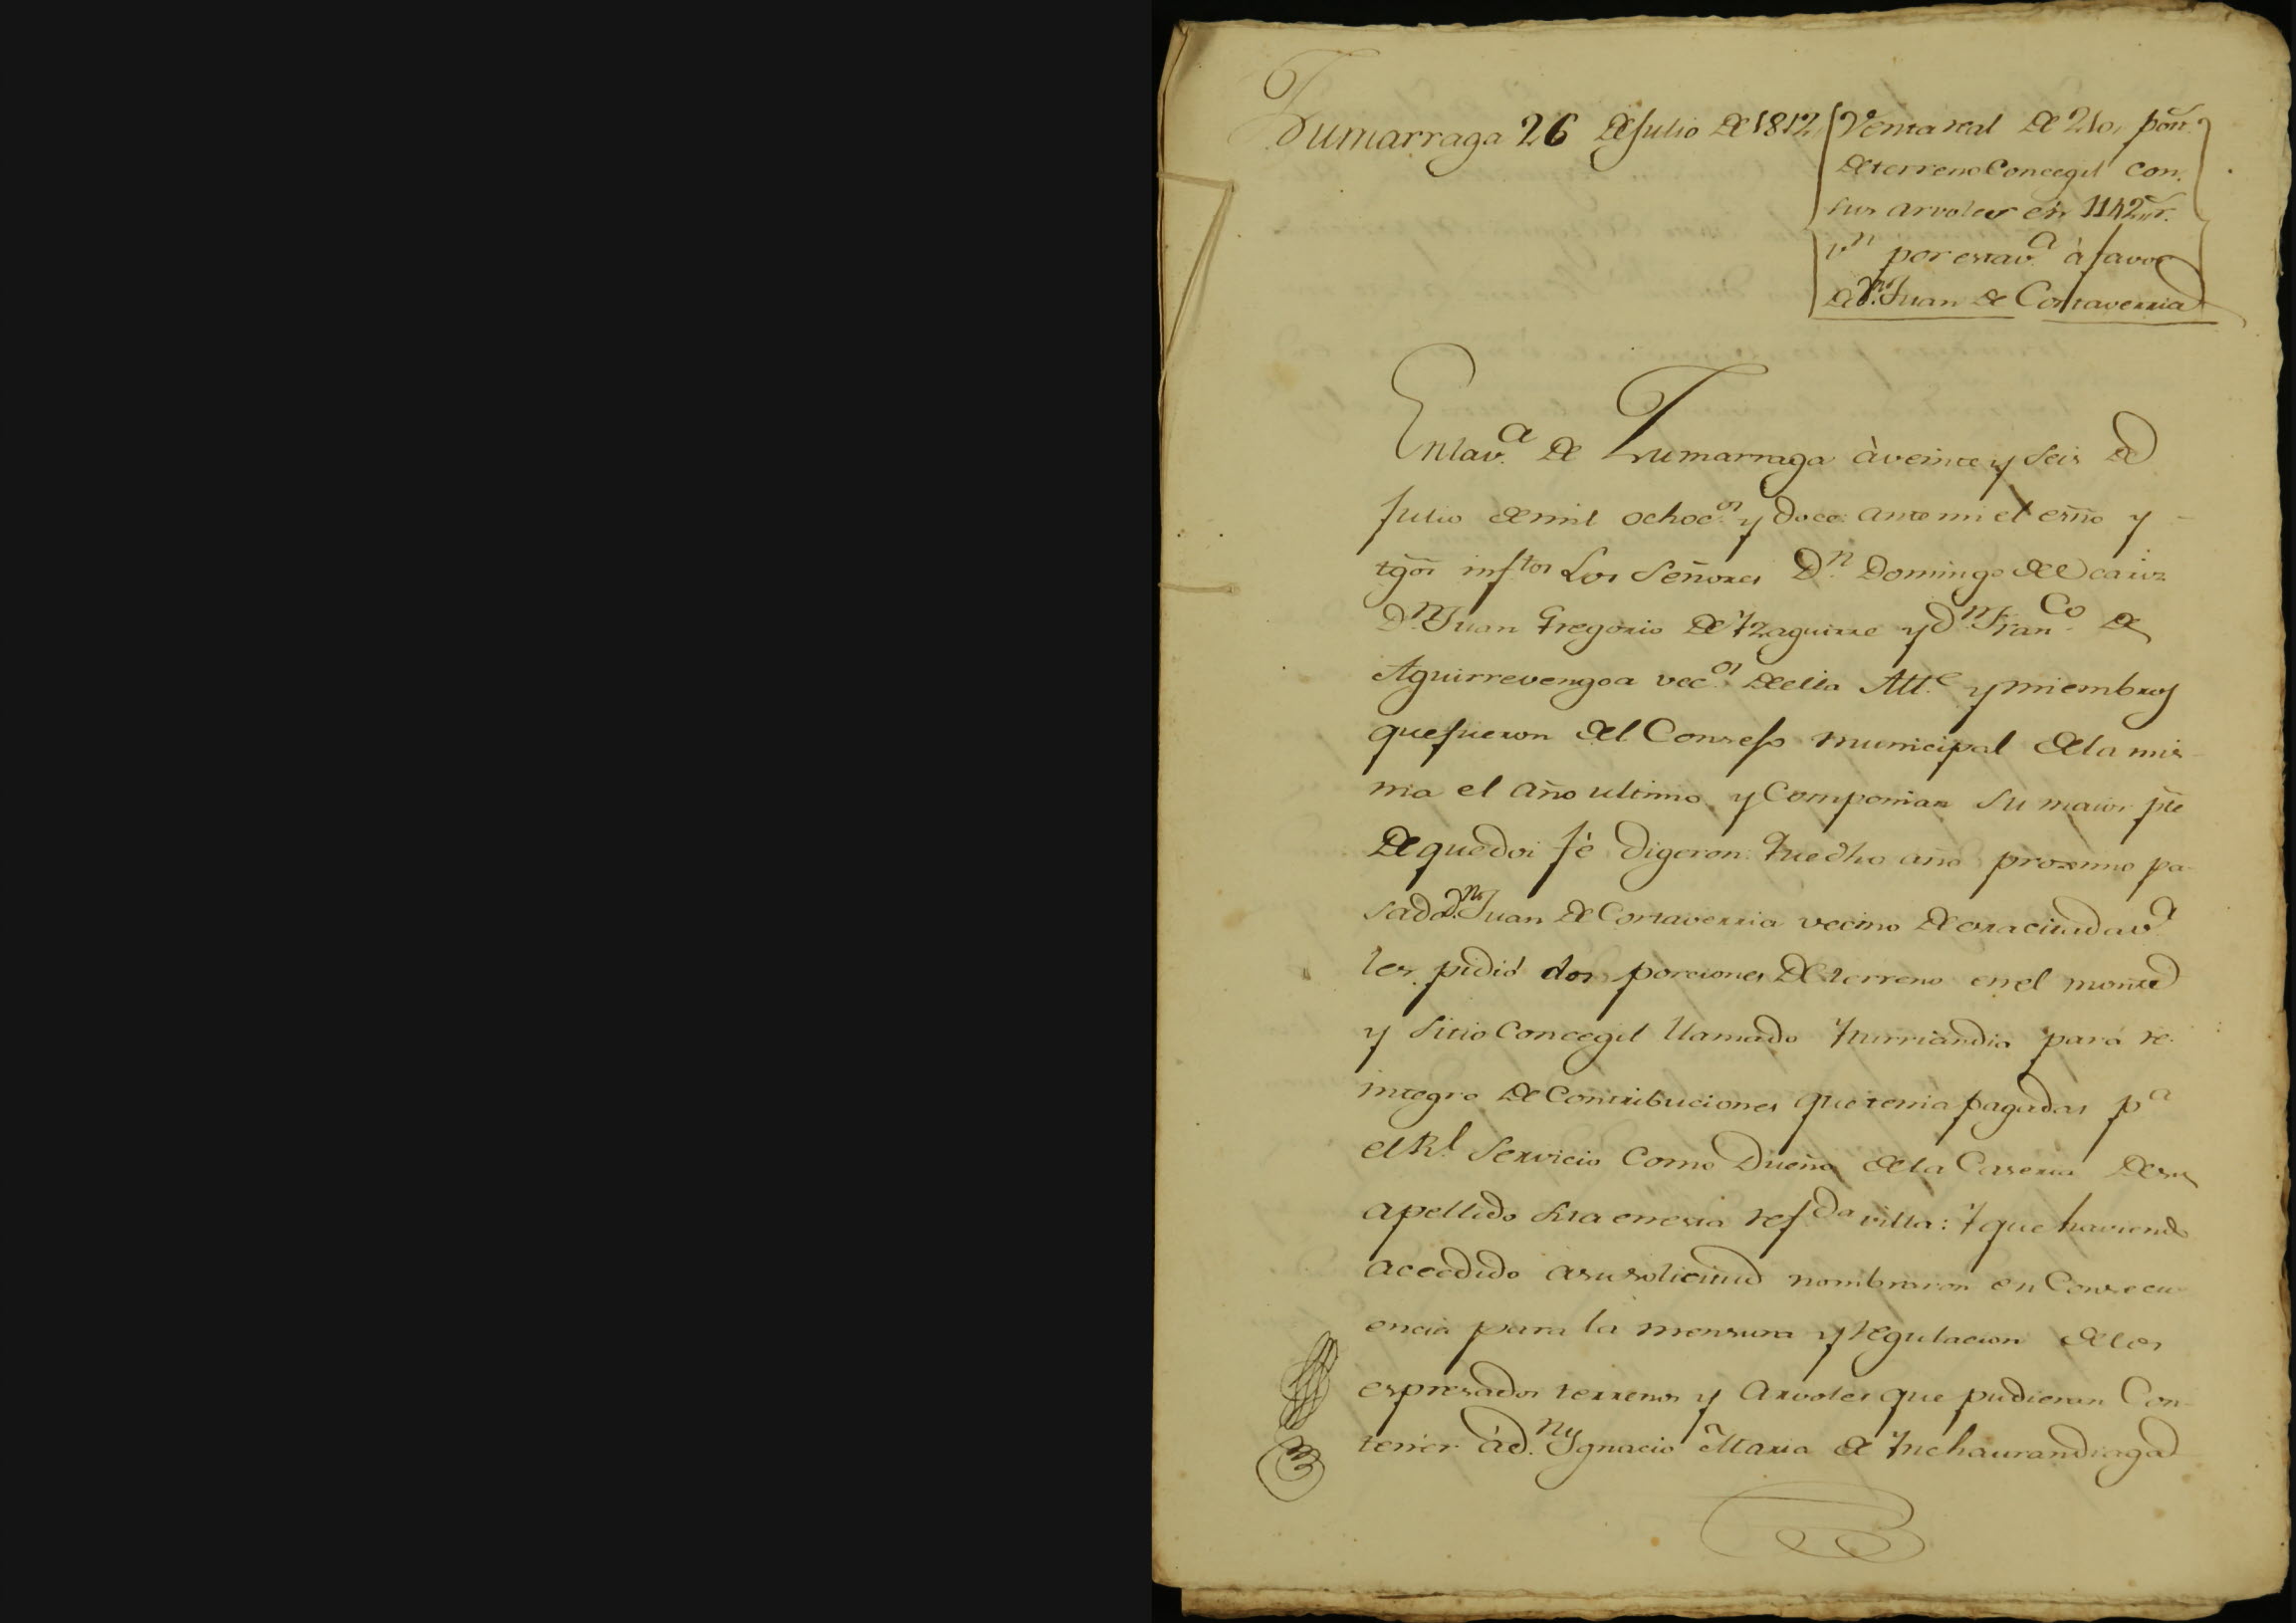 Zumarraga 26 de Julio de 1812
Venta real de dos porc.s
de terreno Concegil con
sus arvoles en 1142 rr.
vn por esta v.a à favor
de Dn. Juan de Cortaverria
En la v.a de Zumarraga à veinte y seis de
Julio de mil ochoc.os y doce: ante mi el esño y
tgõs infttos Los Señores Dn. Domingo de
Dn. Juan Gregorio de Yzaguirre y Dn. Franco. de
Aguirrevengoa vec.os de ella Alt.e y miembros
que fueron del Consejo municipal de la mis-
ma el año ultimo, y Componian su maior pte
de que doi fé digeron: Que dho año proximo pa-
sado Dn. Juan de Cortaverria vecino de esta citada v.a
les pidió dos porciones de terreno en el monte
y sitio Concegil llamado Yturriandia para re-
integro de Contribuciones que tenia pagadas pa
el Rl. servicio como Dueño de la Caseria de su
apellido sita en esta refda villa: Y que haviendo
accedido a su solicitud nombraron en Consecu-
encia para la mensura y regulacion de los
espresados terrenos y Arvoles que pudieran Con-
tener à Dn. Ygnacio Maria de Ynchaurandiaga